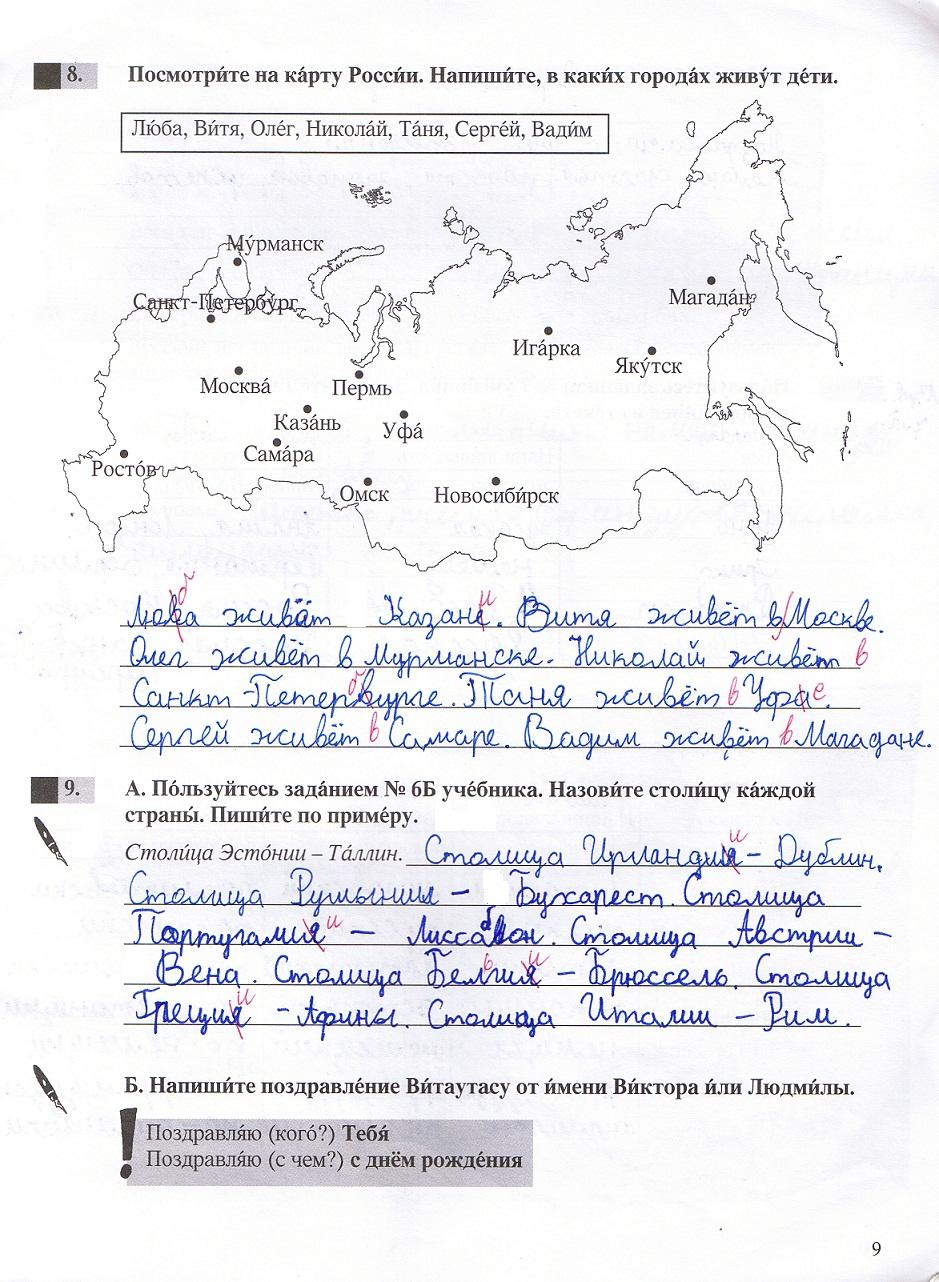 8. Посмотри́те на ка́рту Росси́и. Напиши́те, в каки́х города́х живу́т де́ти.
Лю́ба, Ви́тя, Оле́г, Никола́й, Та́ня, Серге́й, Вади́м
Му́рманск
Санкт-Петербу́рг
Магада́н
Ига́рка
Яку́тск
Москва́
Пермь
Каза́нь
Уфа́
Сама́ра
Росто́в
Омск
Новосиби́рск
живёт Казане и. Витя живёт в Москве.
Олег живёт в Мурманске. Николай живёт в
Санкт-Петербурге. Таня живёт в Уфае.
Сергей живёт в Самаре. Вадим живёт в Магадане.
9. А. По́льзуйтесь зада́нием № 6Б уче́бника. Назови́те столи́цу ка́ждой
страны́. Пиши́те по приме́ру.
Столи́ца Эсто́нии – Та́ллин. Столица Ирландия и – Дублин.
Столица Румынии – Бухарест. Столица
Португалия и – Лиссабон. Столица Австрии –
Вена. Столица Белгия ь и – Брюссель. Столица
Греция и – Афины. Столица Италии – Рим.
Б. Напиши́те поздравле́ние Ви́таутасу от и́мени Ви́ктора и́ли Людми́лы.
! Поздравля́ю (кого́?) Тебя́
Поздравля́ю (с чем?) с днём рожде́ния
9